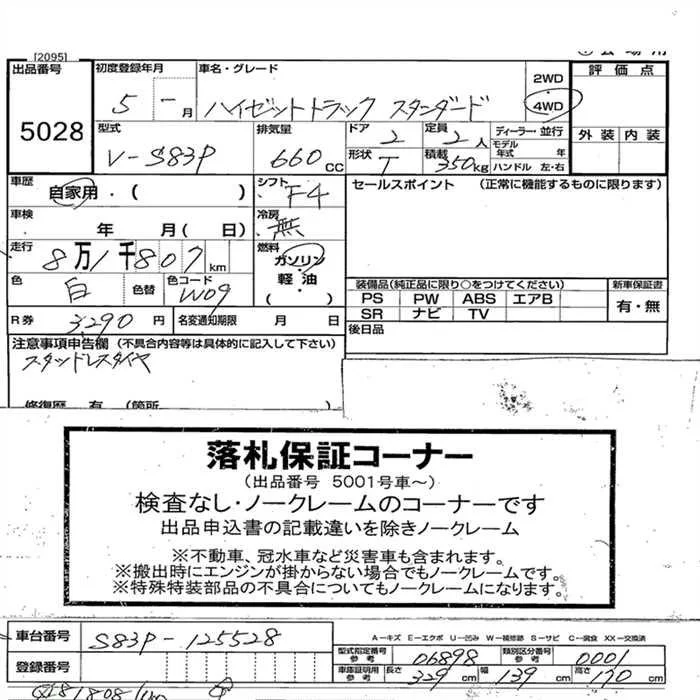 [2095]
出品番号 初度登録年月 車名・グレード 2WD 評価点
5028 5 - 月 ハイゼットトラック スタンダード 4WD
型式 排気量 ドア 定員 ディーラー・並行 外装 内装
V-S83P 660 CC 2 2人 モデル年式 年
形状 T 積載 350kg ハンドル 左・右
車歴 自家用・( ) シフト F4 セールスポイント (正常に機能するものに限ります)
車検 年 月( 日) 冷房 無
走行 8万1千807km 燃料 ガソリン
色 白 色替 色コード W09 軽油 ( ) 装備品(純正品に限り○をつけてください) 新車保証書
PS PW ABS エアB 有・無
R券 3,290円 名変通知期限 月 日 SR ナビ TV
注意事項申告欄 (不具合内容等は具体的に記入して下さい) 後日品
スタッドレスタイヤ
修復歴 有 (箇所
落札保証コーナー
(出品番号 5001号車～)
検査なし・ノークレームのコーナーです
出品申込書の記載違いを除きノークレーム
※不動車、冠水車など災害車も含まれます。
※搬出時にエンジンが掛からない場合でもノークレームです。
※特殊特装部品の不具合についてもノークレームになります。
車台番号 S83P-125528 A-キズ E-エクボ U-凹み W-補修跡 S-サビ C-腐食 XX-交換済
登録番号 型式指定番号 参考 06898 類別区分番号 参考 0001
車庫証明用 参考 長さ 329cm 幅 139cm 高さ 170cm